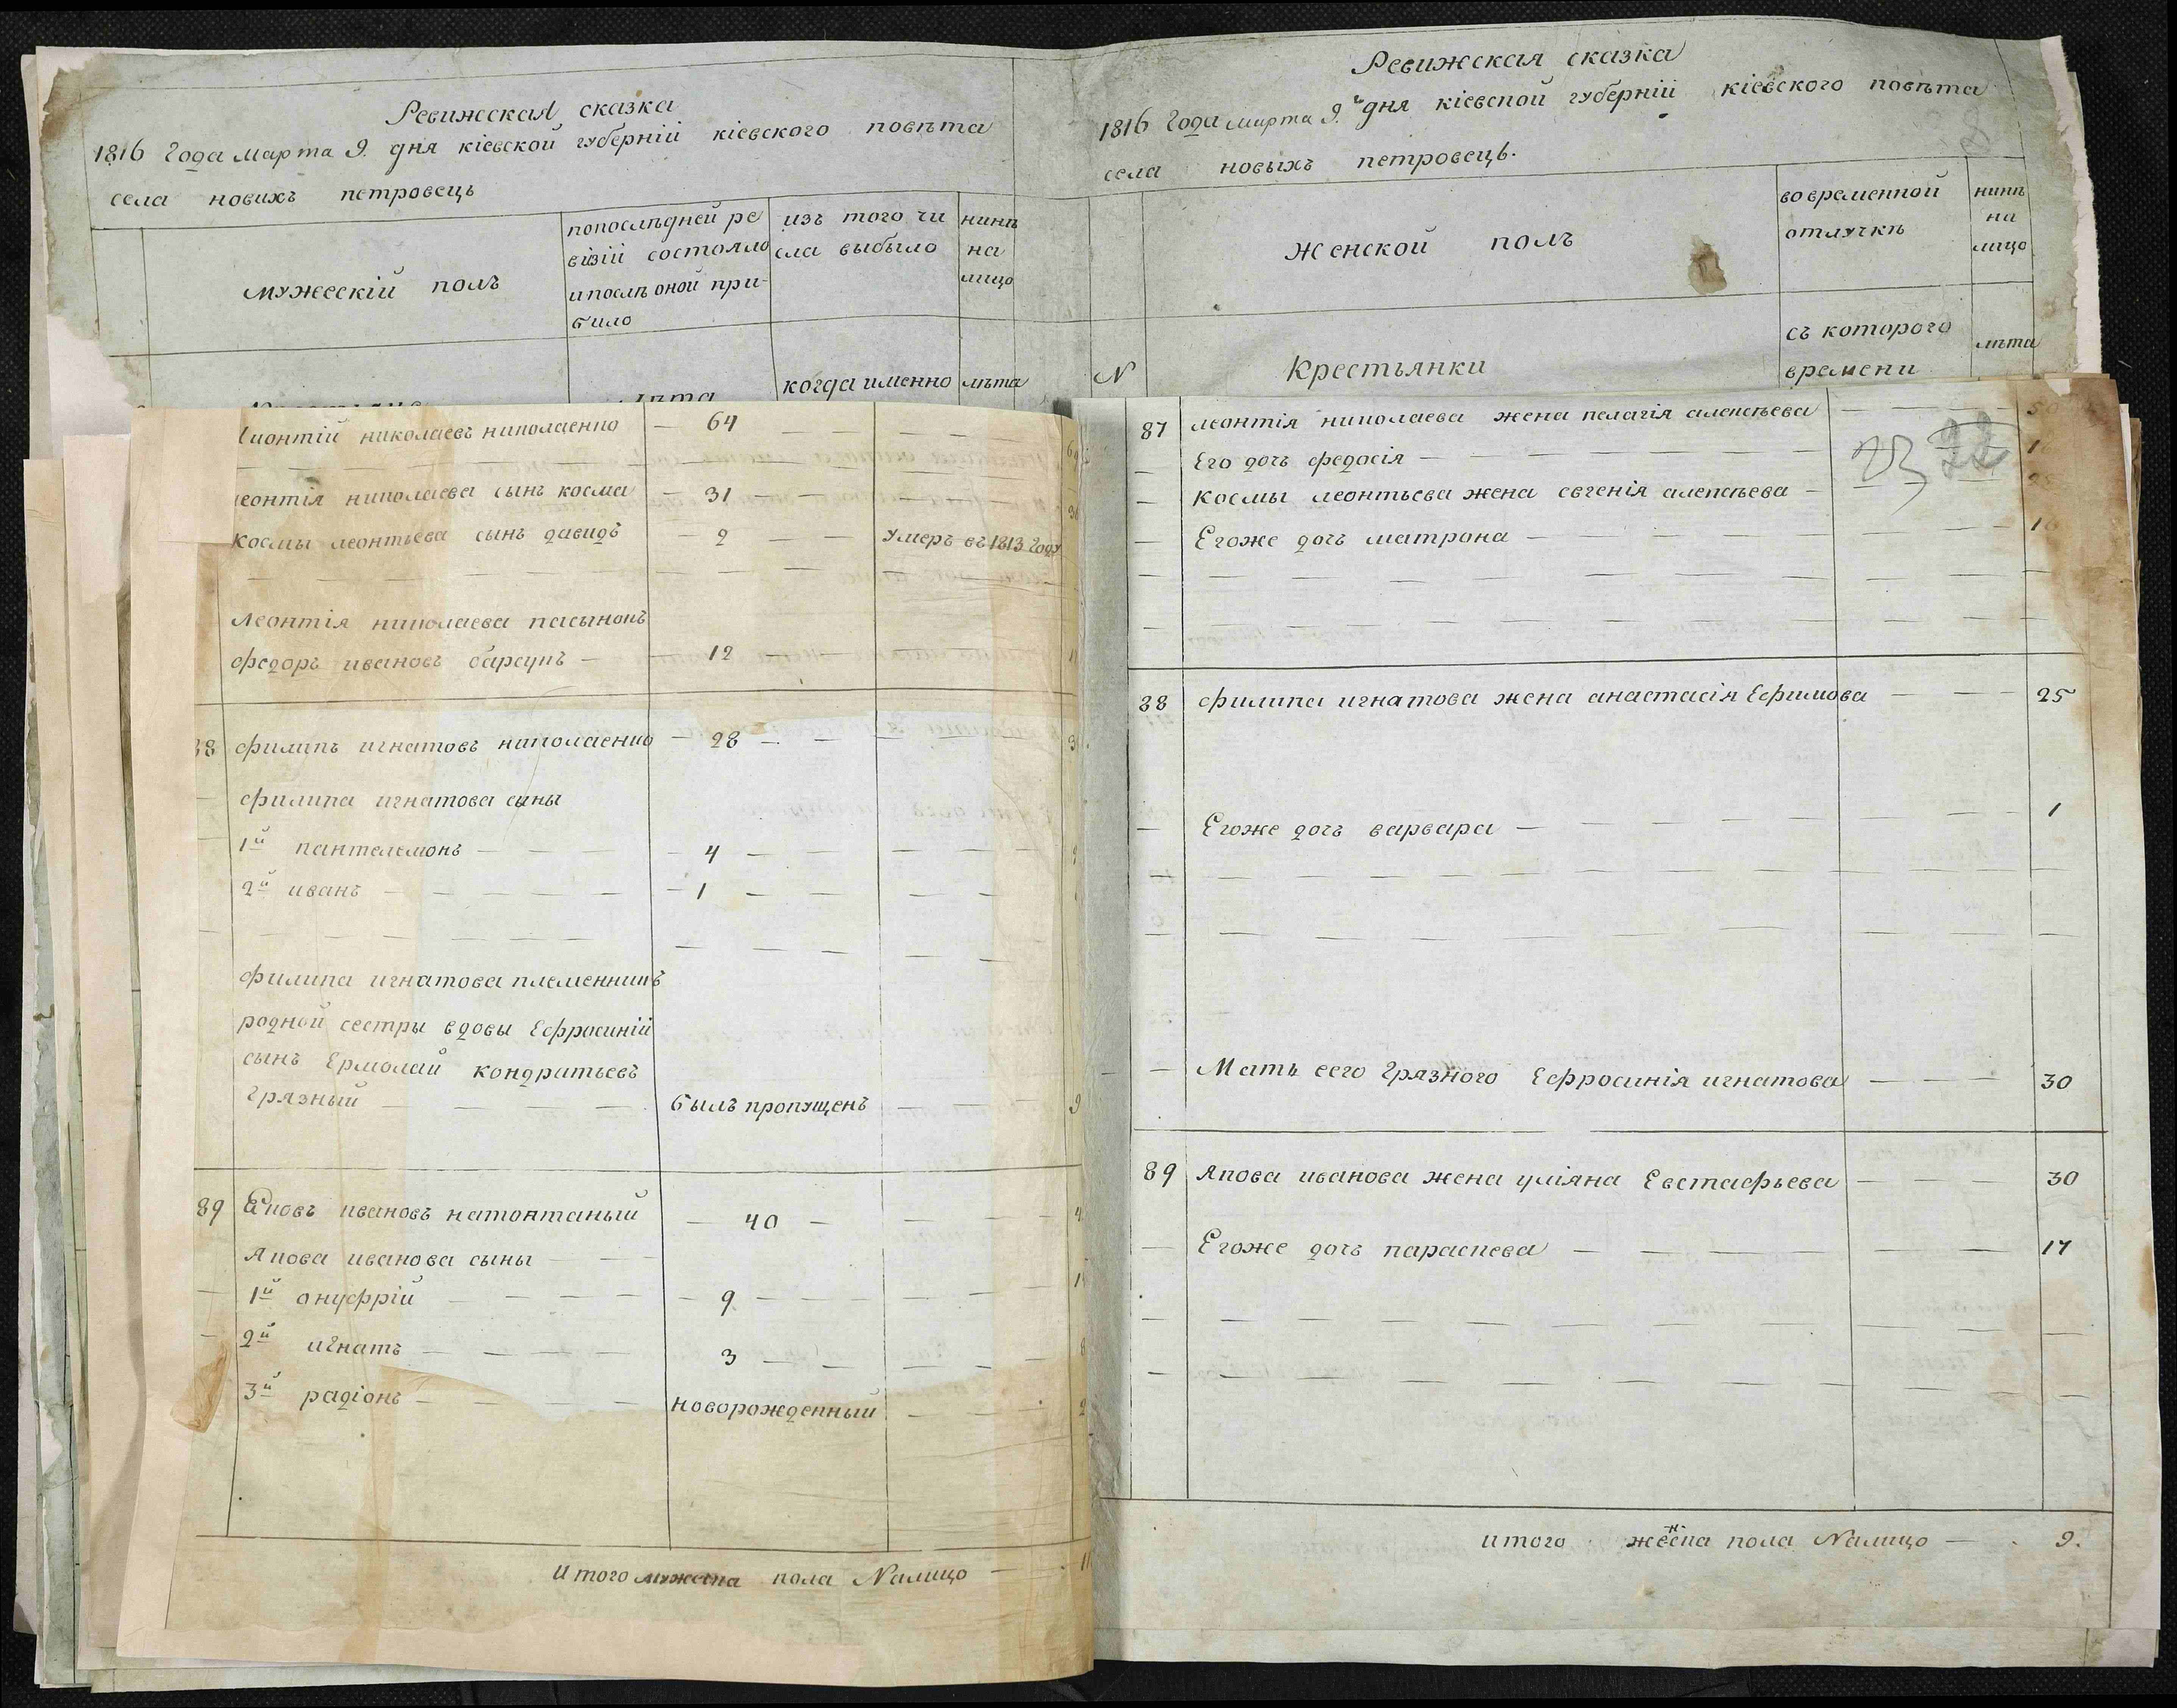 Ревижская сказка
1816 Года марта 9. дня кіевской губерніи кіевского повѣта
села новихъ петровець
мужескій полъ
попослѣдней ре
візіи состояло
ипослѣ оной при-
било
изъ того чи
сла выбыло
нинѣ
на
лицо
когда именно
лѣта
Ревижская сказка
1816 Года марта 9. дня кіевской губерніи кіевского повѣта
села новыхъ петровець.
N
Женской полъ
Крестьянки
во временной
отлучкѣ
съ которого
времени
нинѣ
на
лицо
лѣта
Леонтій николаевъ николаенко — 64
леонтія николаева сынъ косма — 31
космы леонтьева сынъ давидъ — 2 — умеръ въ 1813 Году
леонтія николаева пасынокъ
федоръ ивановъ барсукъ — 12
38 филипъ игнатовъ николаенко — 28
филипа игнатова сыны
1й пантелемонъ — 4
2й иванъ — 1
филипа игнатова племенникъ
родной сестры вдовы Ефросиніи
сынъ Ермолай кондратьевъ
Грязный — былъ пропущенъ — 9
89 Яковъ ивановъ натоптаный — 40
Якова иванова сыны
1й онуфрій — 9
2й игнатъ — 3
3й радіонъ — новорожденный
Итого мужеска пола Налицо
87 леонтія николаева жена пелагія алексѣева
Его дочь федосія
космы леонтьева жена евгенія алексѣева
Егоже дочь матрона
23 22
38 филипа игнатова жена анастасія Ефимова — 25
Егоже дочь варвара — 1
Мать сего Грязного Ефросинія игнатова — 30
89 Якова иванова жена уліяна Евстафьева — 30
Егоже дочь параскева — 17
итого женска пола Налицо — 9.